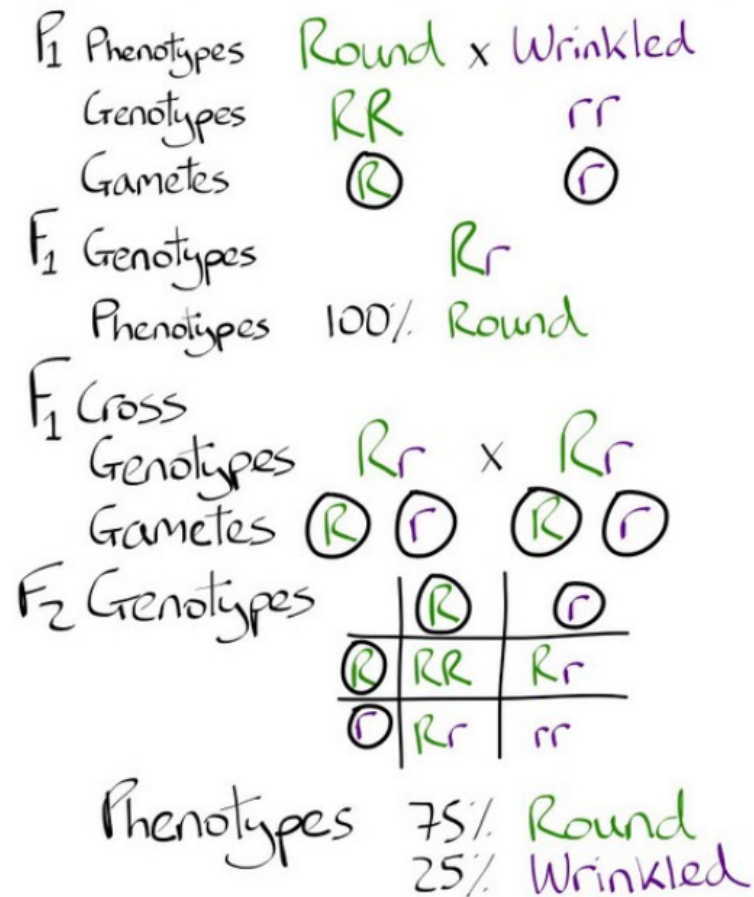 P1 Phenotypes Round x Wrinkled
Genotypes RR rr
Gametes R r
F1 Genotypes Rr
Phenotypes 100% Round
F1 Cross
Genotypes Rr x Rr
Gametes R r R r
F2 Genotypes R r
R RR Rr
r Rr rr
Phenotypes 75% Round
25% Wrinkled